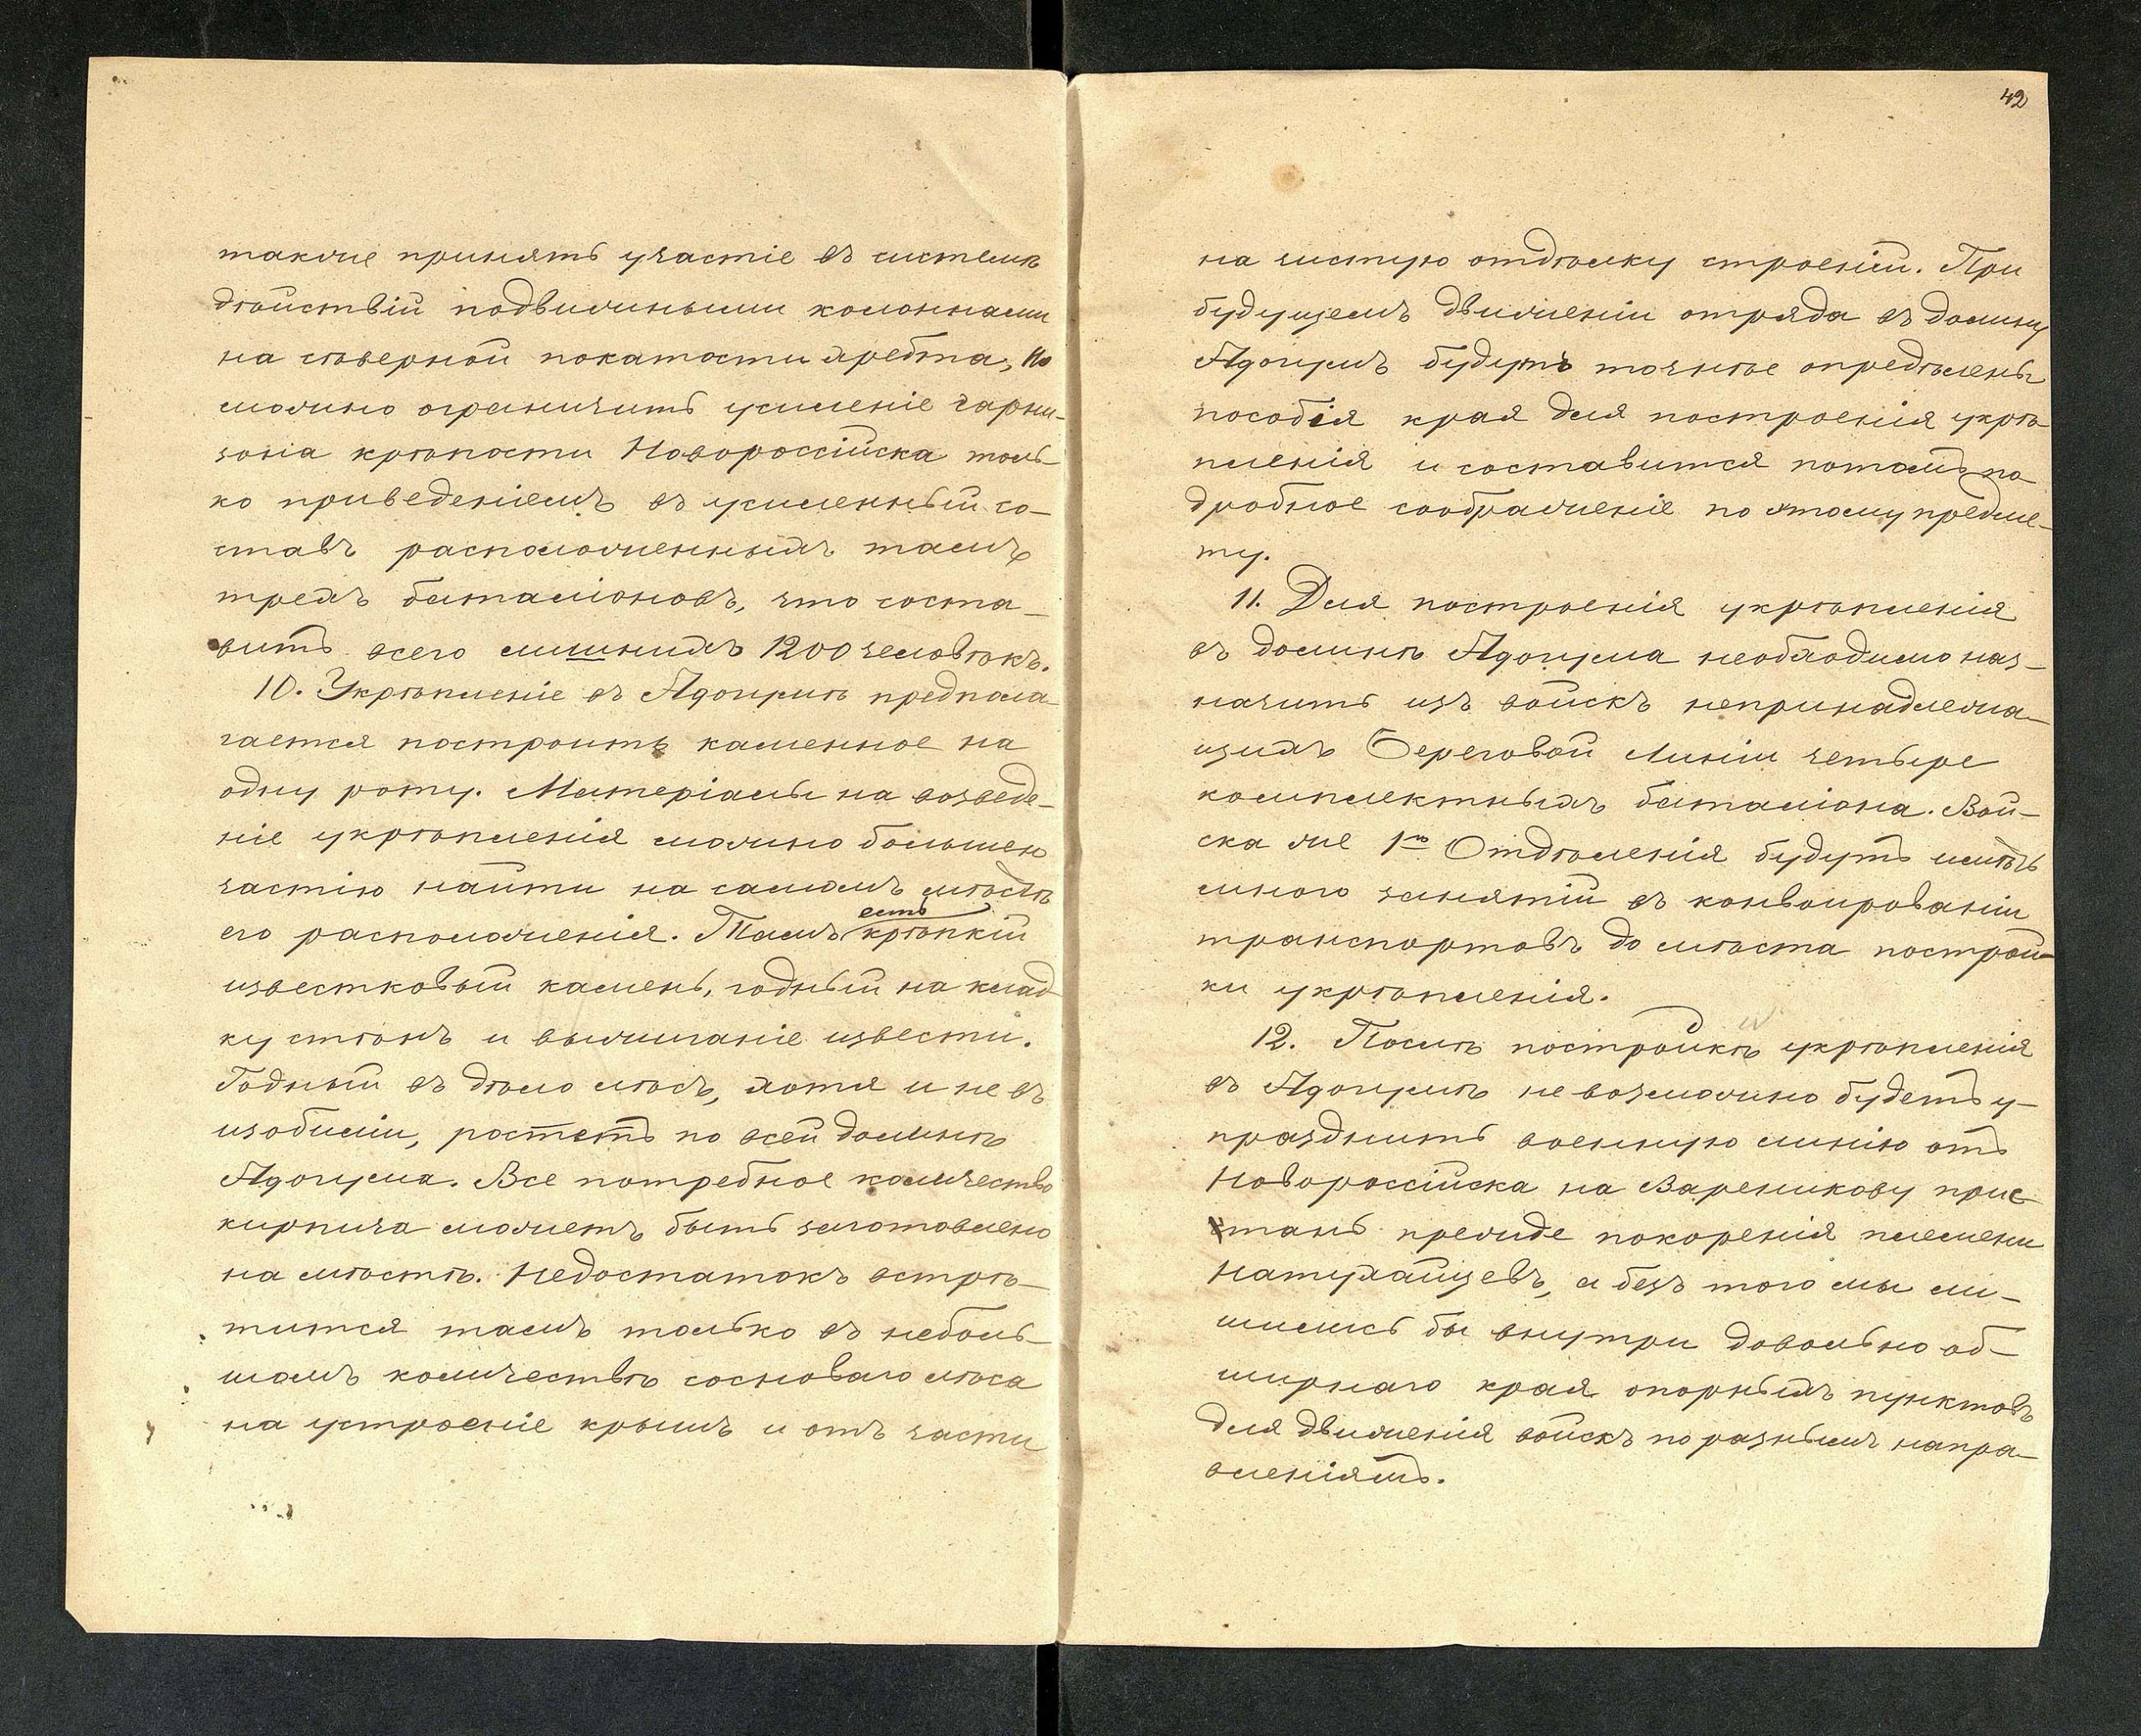 также принять участіе въ системѣ
дѣйствій подвижными колоннами
на сѣверной покатости хребта, но
можно ограничить усиленіе гарни-
зоніа крѣпости Новороссійска толь-
ко приведеніемъ въ усиленный со-
ставъ расположенныхъ тамъ
трехъ баталіоновъ, что соста-
витъ всего лишнихъ 1200 человѣкъ.
10. Укрѣпленіе въ Адагумѣ предпола-
гается построить каменное на
одну роту. Матеріалы на возведе-
ніе укрѣпленія можно большею
частію найти на самомъ мѣстѣ
его расположенія. Тамъ есть крѣпкій
известковый камень, годный на клад-
ку стѣнъ и выжиганіе извести.
Годный въ дѣло лѣсъ, хотя и не въ
изобиліи, ростетъ по всей долинѣ
Адагума. Все потребное количество
кирпича можетъ быть заготовлено
на мѣстѣ. Недостатокъ встрѣ-
тится тамъ только въ неболь-
шомъ количествѣ сосноваго лѣса
на устроеніе крышъ и отъ части
42
на чистую отдѣлку строеній. При
будущемъ движеніи отряда въ долину
Адагумъ будутъ точнѣе опредѣлены
пособія края для построенія укрѣ-
пленія и составится потомъ по-
дробное соображеніе по этому предме-
ту.
11. Для построенія укрѣпленія
въ долинѣ Адагума необходимо наз-
начить изъ войскъ непринадлежа-
щихъ Береговой Линіи четыре
комплектныхъ баталіона. Вой-
ска же 1го Отдѣленія будутъ имѣть
много занятій въ конвоированіи
транспортовъ до мѣста построй-
ки укрѣпленія.
12. Послѣ постройкѣ укрѣпленія
въ Адагумѣ невозможно будетъ у-
празднить военную линію отъ
Новороссійска на Вареникову прис-
тань прежде покоренія племени
Натухайцевъ, а безъ того мы ли-
шились бы внутри довольно об-
ширнаго края опорныхъ пунктовъ
для движенія войскъ по разнымъ напра-
вленіямъ.